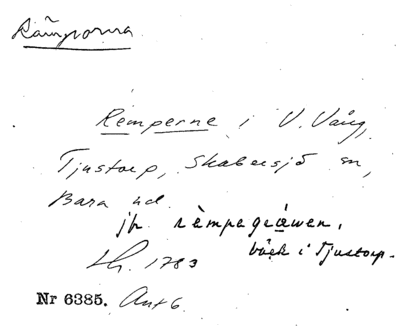 Rämporna
Remperne i V. Vång,
Tjustorp, Skabersjö sn,
Bara hd.
jfr rèmpegräwen,
bäck i Tjustorp.
Lh. 1783
Nr 6385. Ant 6.